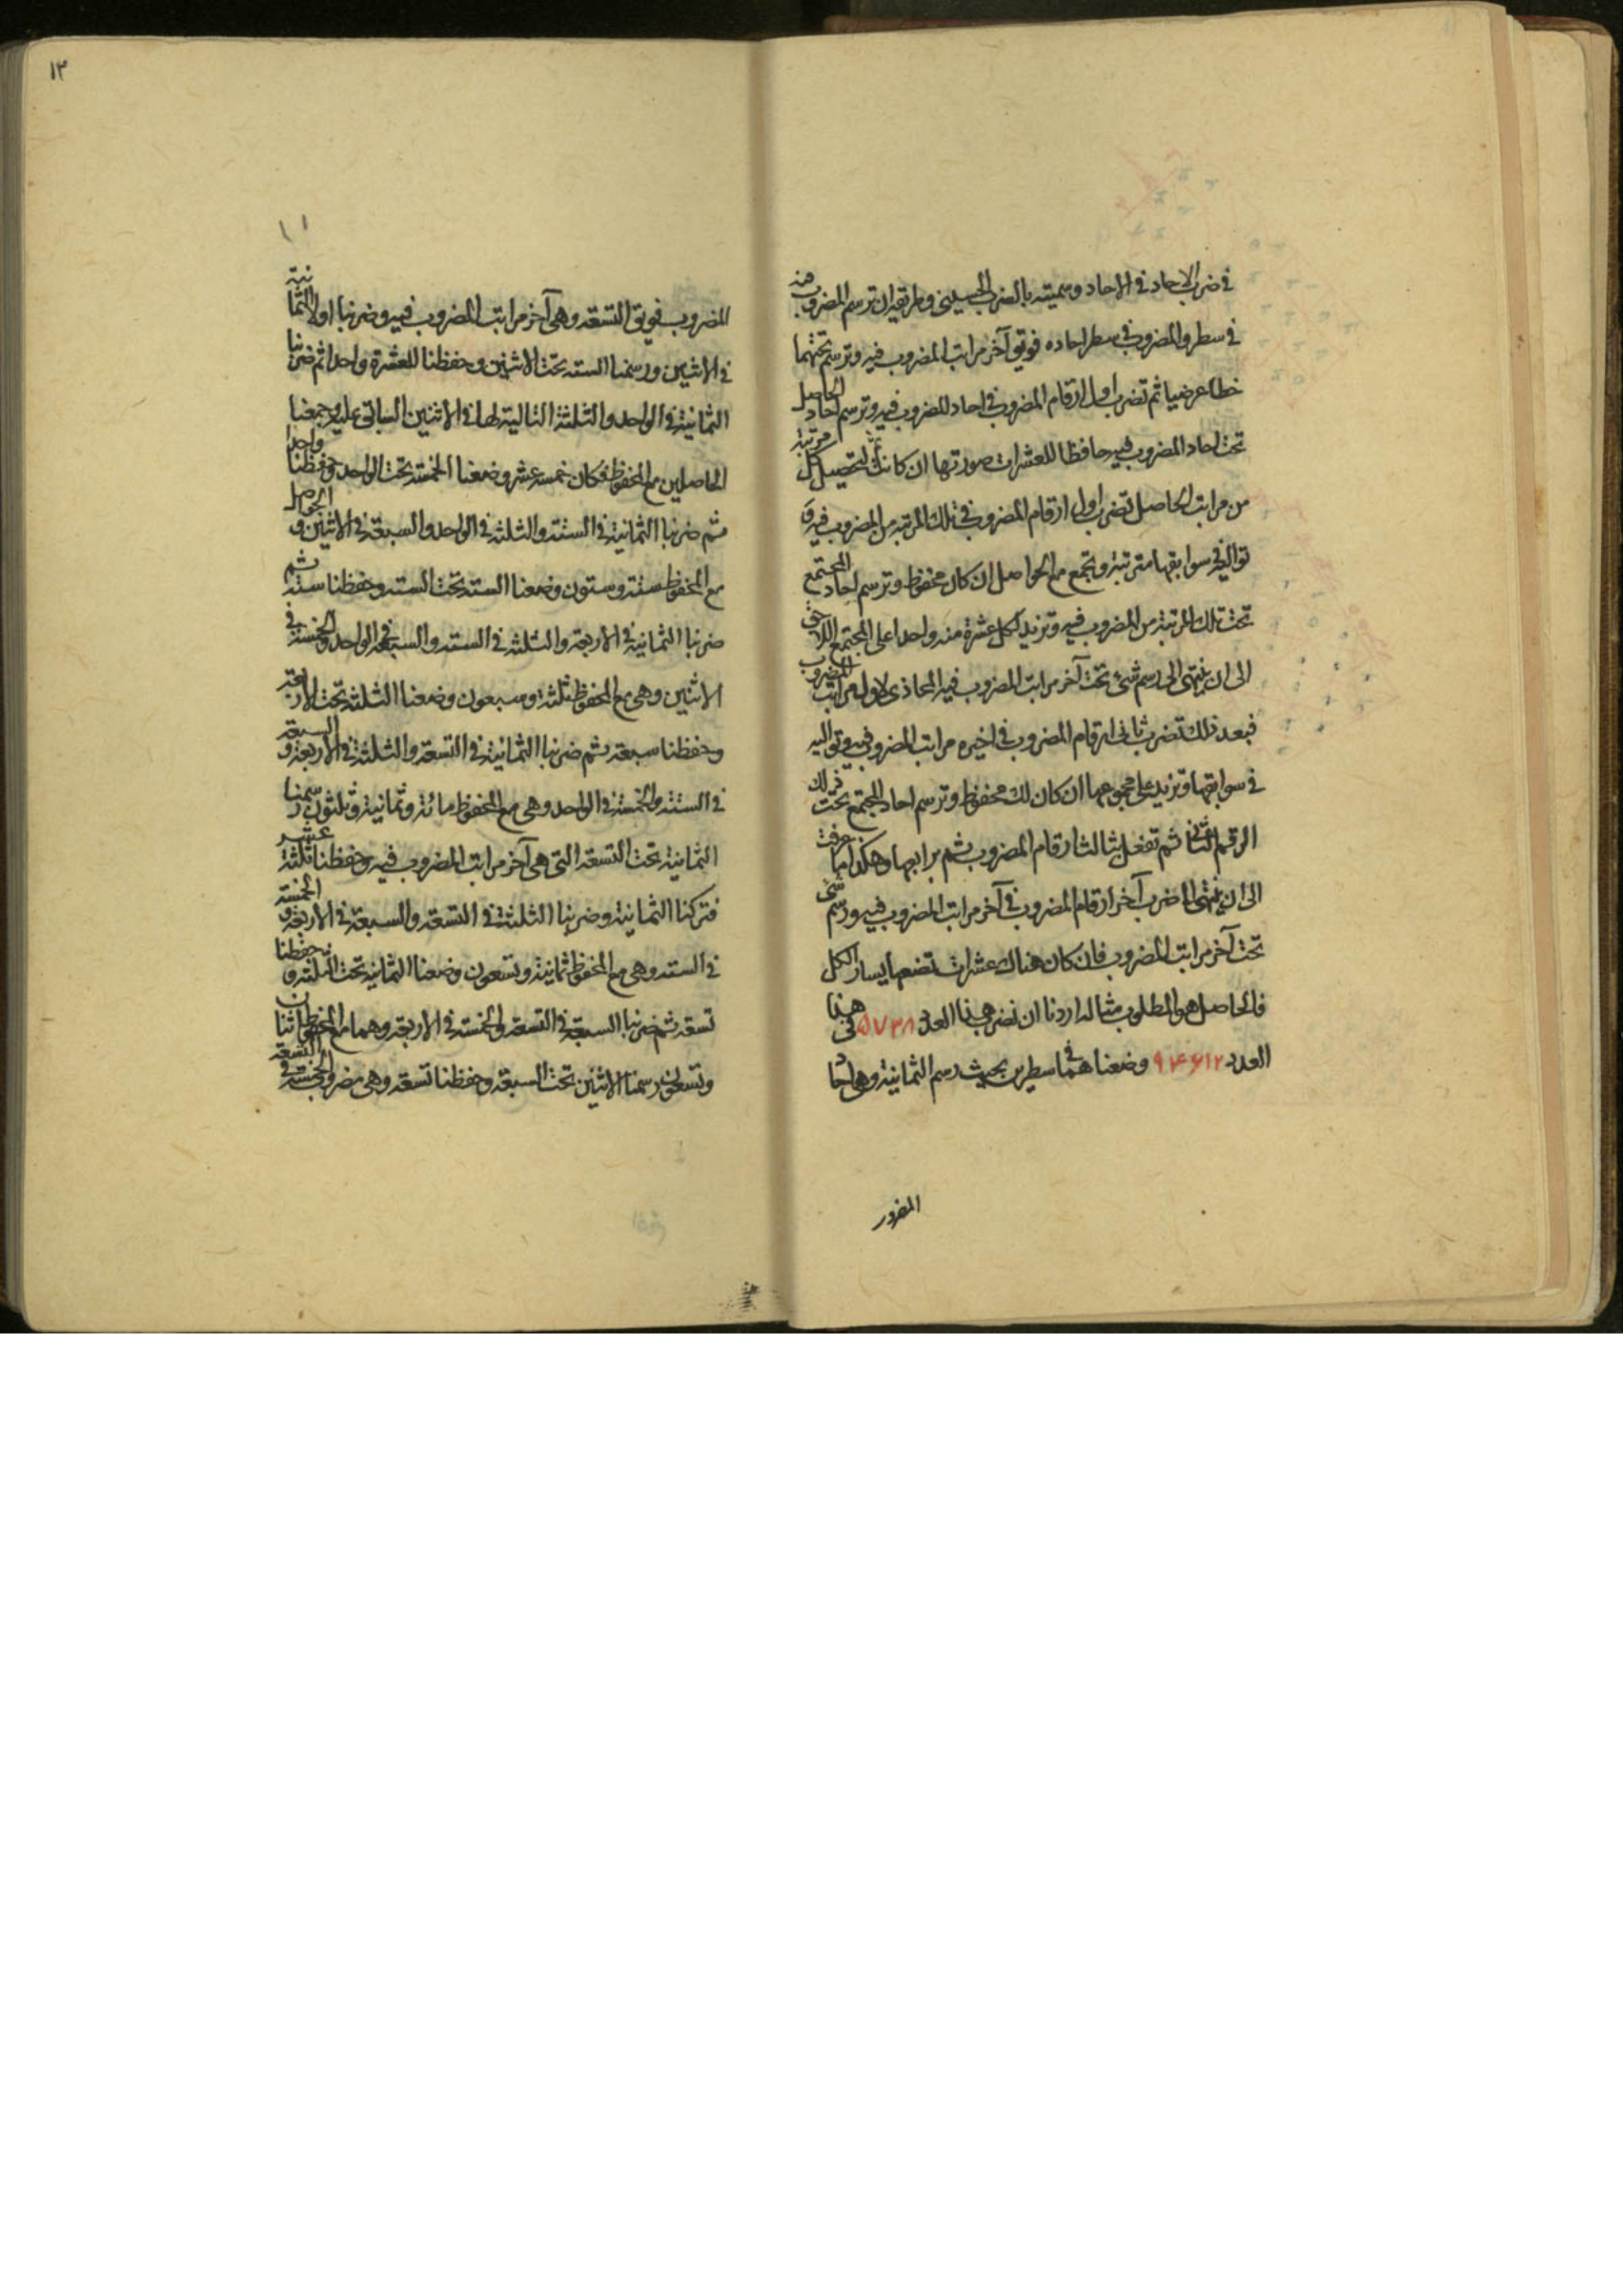 في ضرب الاحاد في الاحاد وسميته بالضرب الحسيني وطريقه ان ترسم المضروب فيه
في سطر والمضروب في سطر احاده فويق آخر مراتب المضروب فيه وترسم تحتهما
خطا عرضيا ثم تضرب اول ارقام المضروب في احاد المضروب فيه وترسم احاد الحاصل
تحت احاد المضروب فيه حافظا للعشرات صورتها ان كانت ثم لتحصيل كل مرتبة
من مراتب الحاصل تضرب اول ارقام المضروب في تلك المرتبة من المضروب فيه و
تواليه في سوابقها مترتبة وتجمع مع الحواصل ان كان محفوظ وترسم احاد المجتمع
تحت تلك المرتبة من المضروب فيه وتزيد لكل عشرة منه واحدا على المجتمع اللاحق
الى ان ينتهى الى رسم شئ تحت آخر مراتب المضروب فيه المحاذى لاول مراتب المضروب
فبعد ذلك تضرب ثانى ارقام المضروب في اخيرة مراتب المضروب فيه وتواليه
في سوابقها وتزيد على مجموعهما ان كان لك محفوظ وترسم احاد المجتمع تحت ذلك
الرقم الثانى ثم تفعل بثالث ارقام المضروب ثم برابعها وهكذا بما عرفت
الى ان ينتهى الى ضرب آخر ارقام المضروب في آخر مراتب المضروب فيه ورسم شئ
تحت آخر مراتب المضروب فان كان هناك عشرات تضعها يسار الكل
فالحاصل هو المطلوب مثاله اردنا ان نضرب هذا العدد ٥٧٣٨ في هذا
العدد ٩٤٦١٢ وضعناهما في سطرين بحيث رسم الثمانية وهى احاد
المضروب
١٢
١١
المضروب فويق التسعة وهى آخر مراتب المضروب فيه وضربنا اولا الثمانية
في الاثنين ورسمنا الستة تحت الاثنين وحفظنا للعشرة واحدا ثم ضربنا
الثمانية في الواحد والثلثة التالية لها في الاثنين السابق عليه وجمعنا
الحاصلين مع المحفوظ فكان خمسة عشر وضعنا الخمسة تحت الواحد وحفظنا واحدا
ثم ضربنا الثمانية في الستة والثلثة في الواحد والسبعة في الاثنين والحواصل
مع المحفوظ ستة وستون وضعنا الستة تحت الستة وحفظنا ستة ثم
ضربنا الثمانية في الاربعة والثلثة في الستة والسبعة في الواحد والخمسة في
الاثنين وهى مع المحفوظ ثلثة وسبعون وضعنا الثلثة تحت الاربعة
وحفظنا سبعة ثم ضربنا الثمانية في التسعة والثلثة في الاربعة والسبعة
في الستة والخمسة في الواحد وهى مع المحفوظ مائة وثمانية وثلثون رسمنا
الثمانية تحت التسعة التى هى آخر مراتب المضروب فيه وحفظنا ثلثة عشر
فتركنا الثمانية وضربنا الثلثة في التسعة والسبعة في الاربعة والخمسة
في الستة وهى مع المحفوظ ثمانية وتسعون وضعنا الثمانية تحت الثلثة وحفظنا
تسعة ثم ضربنا السبعة في التسعة والخمسة في الاربعة وهما مع المحفوظ اثنان
وتسعون رسمنا الاثنين تحت السبعة وحفظنا تسعة وهى مضروب الخمسة في التسعة